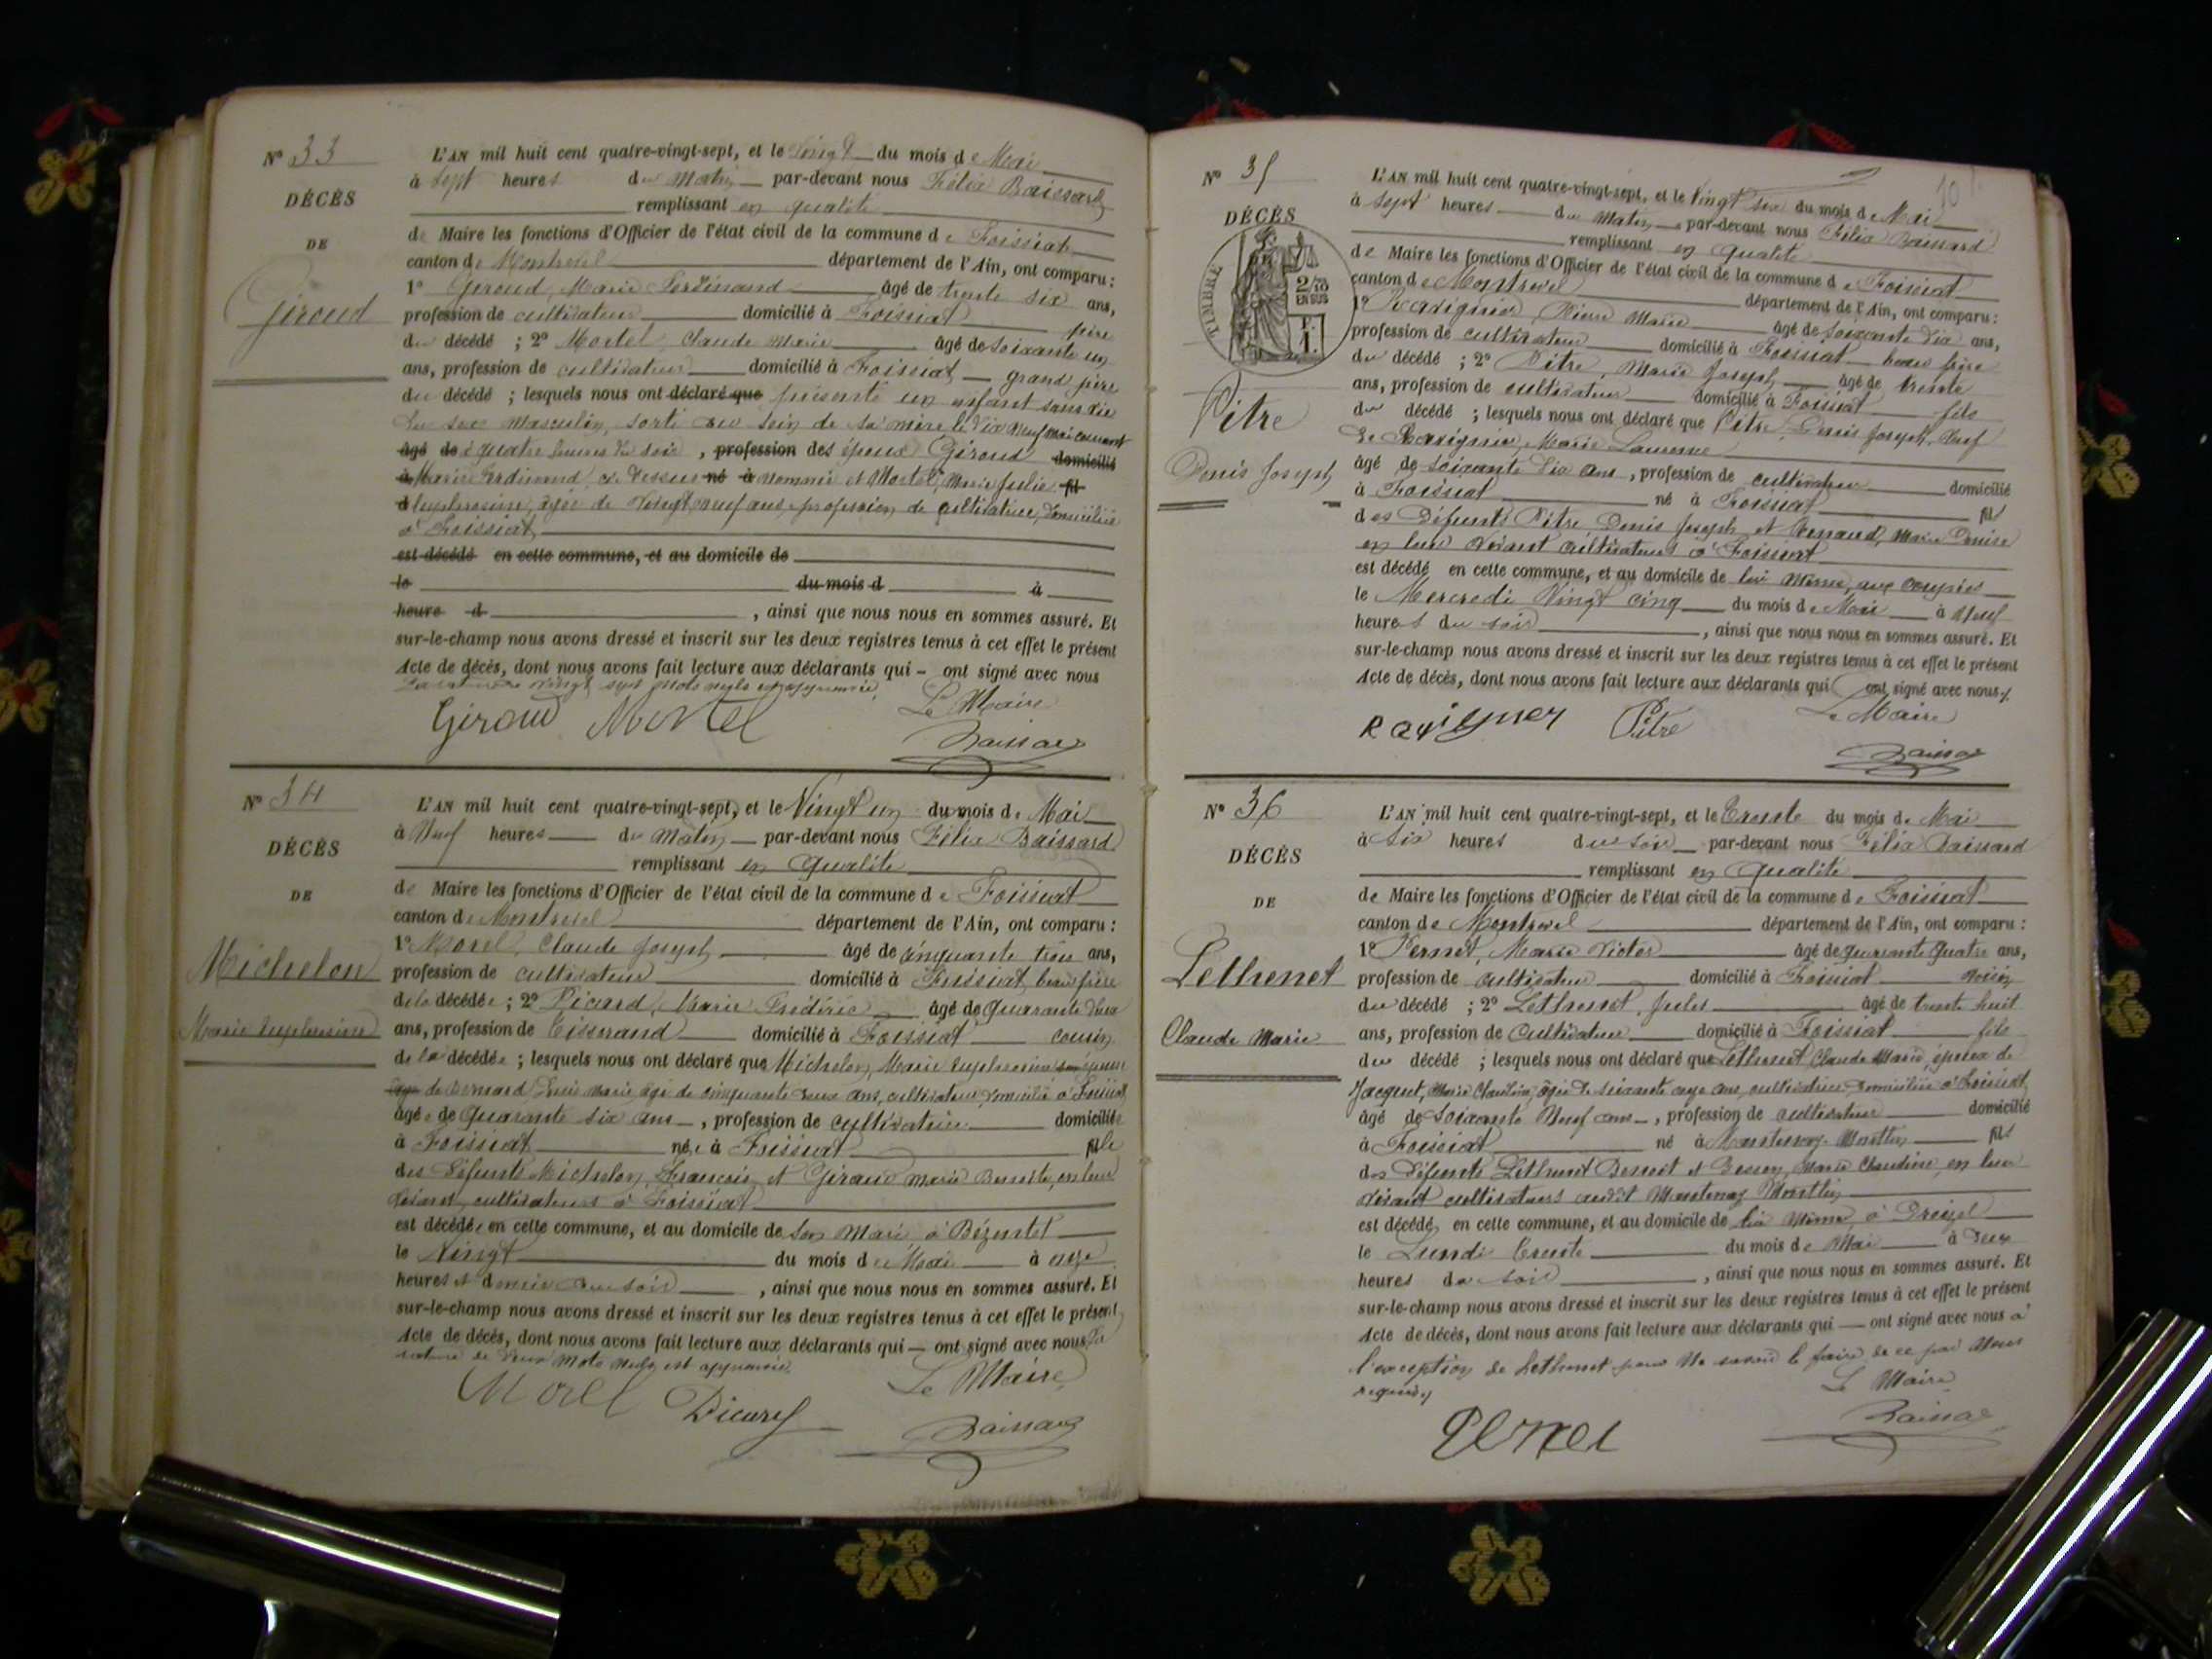 N° 33
DÉCÈS
DE
Giroud
L'AN mil huit cent quatre-vingt-sept, et le Vingt du mois de Mai
à Sept heures du Matin par-devant nous Félix Baissard
remplissant en qualité
de Maire les fonctions d'Officier de l'état civil de la commune de Foissiat
canton de Montrevel département de l'Ain, ont comparu :
1° Giroud, Marie Ferdinand âgé de trente six ans,
profession de cultivateur domicilié à Foissiat père
du décédé ; 2° Mortel, Claude Marie âgé de soixante un
ans, profession de cultivateur domicilié à Foissiat grand père
du décédé ; lesquels nous ont déclaré que présenté un enfant sans vie
du sexe Masculin, sorti du sein de sa mère le dix neuf mai courant
âgé de à quatre heures du soir, profession des époux Giroud domicilié
à Marie Ferdinand, ci dessus né à nommé et Mortel, Marie Julie fil
d Euphrosine, âgée de Vingt neuf ans, profession de cultivatrice, domiciliée
à Foissiat
est décédé en cette commune, et au domicile de
le du mois d à
heure d , ainsi que nous nous en sommes assuré. Et
sur-le-champ nous avons dressé et inscrit sur les deux registres tenus à cet effet le présent
Acte de décès, dont nous avons fait lecture aux déclarants qui ont signé avec nous
La rature de vingt sept mots nuls est approuvée.
Giroud Mortel Le Maire
Baissard
N° 34
DÉCÈS
DE
Michelon
Marie Euphrosine
L'AN mil huit cent quatre-vingt-sept, et le Vingt un du mois de Mai
à Neuf heures du Matin par-devant nous Félix Baissard
remplissant en qualité
de Maire les fonctions d'Officier de l'état civil de la commune de Foissiat
canton de Montrevel département de l'Ain, ont comparu :
1° Morel, Claude Joseph âgé de cinquante trois ans,
profession de cultivateur domicilié à Foissiat, beau frère
de la décédée ; 2° Picard, Marie Frédéric âgé de quarante deux
ans, profession de Tisserand domicilié à Foissiat cousin
de la décédée ; lesquels nous ont déclaré que Michelon, Marie Euphrosine épouse
de Bernard, Louis Marie, âgé de cinquante deux ans, cultivateur, domicilié à Foissiat
âgée de Quarante six ans, profession de cultivatrice domiciliée
à Foissiat née à Foissiat fille
des défunts Michelon, François et Giraud Marie Benoîte, en leur
vivant, cultivateurs à Foissiat
est décédée en cette commune, et au domicile de son Mari à Bézentet
le Vingt du mois de Mai à onze
heures et demie du soir, ainsi que nous nous en sommes assuré. Et
sur-le-champ nous avons dressé et inscrit sur les deux registres tenus à cet effet le présent
Acte de décès, dont nous avons fait lecture aux déclarants qui ont signé avec nous La
rature de deux mots nuls est approuvée.
Morel Picard Le Maire
Baissard
N° 35
DÉCÈS
TIMBRE
2/10
EN SUS
Pitre
Denis Joseph
L'AN mil huit cent quatre-vingt-sept, et le Vingt six du mois de Mai
à Sept heures du Matin par-devant nous Félix Baissard
remplissant en qualité
de Maire les fonctions d'Officier de l'état civil de la commune de Foissiat
canton de Montrevel département de l'Ain, ont comparu :
1° Ravignier, Pierre Marie âgé de soixante dix ans,
profession de cultivateur domicilié à Foissiat beau frère
du décédé ; 2° Pitre, Marie Joseph âgé de trente
ans, profession de cultivateur domicilié à Foissiat fils
du décédé ; lesquels nous ont déclaré que Pitre, Denis Joseph, Veuf
de Ravignier, Marie Laurence
âgé de soixante dix ans, profession de cultivateur domicilié
à Foissiat né à Foissiat fils
des Défunts Pitre Denis Joseph et Renaud, Marie Denise
en leur vivant cultivateurs à Foissiat
est décédé en cette commune, et au domicile de lui même, aux
le Mercredi Vingt cinq du mois de Mai à Neuf
heures du soir, ainsi que nous nous en sommes assuré. Et
sur-le-champ nous avons dressé et inscrit sur les deux registres tenus à cet effet le présent
Acte de décès, dont nous avons fait lecture aux déclarants qui ont signé avec nous
Le Maire
Ravigner Pitre
Baissard
N° 36
DÉCÈS
DE
Lethenet
Claude Marie
L'AN mil huit cent quatre-vingt-sept, et le Trente du mois de Mai
à Six heures du soir par-devant nous Félix Baissard
remplissant en qualité
de Maire les fonctions d'Officier de l'état civil de la commune de Foissiat
canton de Montrevel département de l'Ain, ont comparu :
1° Pernet, Marie Victor âgé de quarante quatre ans,
profession de cultivateur domicilié à Foissiat voisin
du décédé ; 2° Lethenet, Jules âgé de trente huit
ans, profession de Cultivateur domicilié à Foissiat fils
du décédé ; lesquels nous ont déclaré que Lethenet Claude Marie, époux de
Jacquet, Marie Claudine, âgée de soixante onze ans, cultivatrice, domiciliée à Foissiat
âgé de soixante Neuf ans, profession de cultivateur domicilié
à Foissiat né à Mantenay Montlin fils
des défunts Lethenet Benoit et Besson, Marie Claudine, en leur
vivant cultivateurs audit Mantenay Montlin
est décédé en cette commune, et au domicile de lui même, à
le Lundi Trente du mois de Mai à deux
heures du soir, ainsi que nous nous en sommes assuré. Et
sur-le-champ nous avons dressé et inscrit sur les deux registres tenus à cet effet le présent
Acte de décès, dont nous avons fait lecture aux déclarants qui ont signé avec nous à
l'exception de Lethenet pour ne savoir le faire de ce par Nous
requis
Le Maire
Pernet Baissard